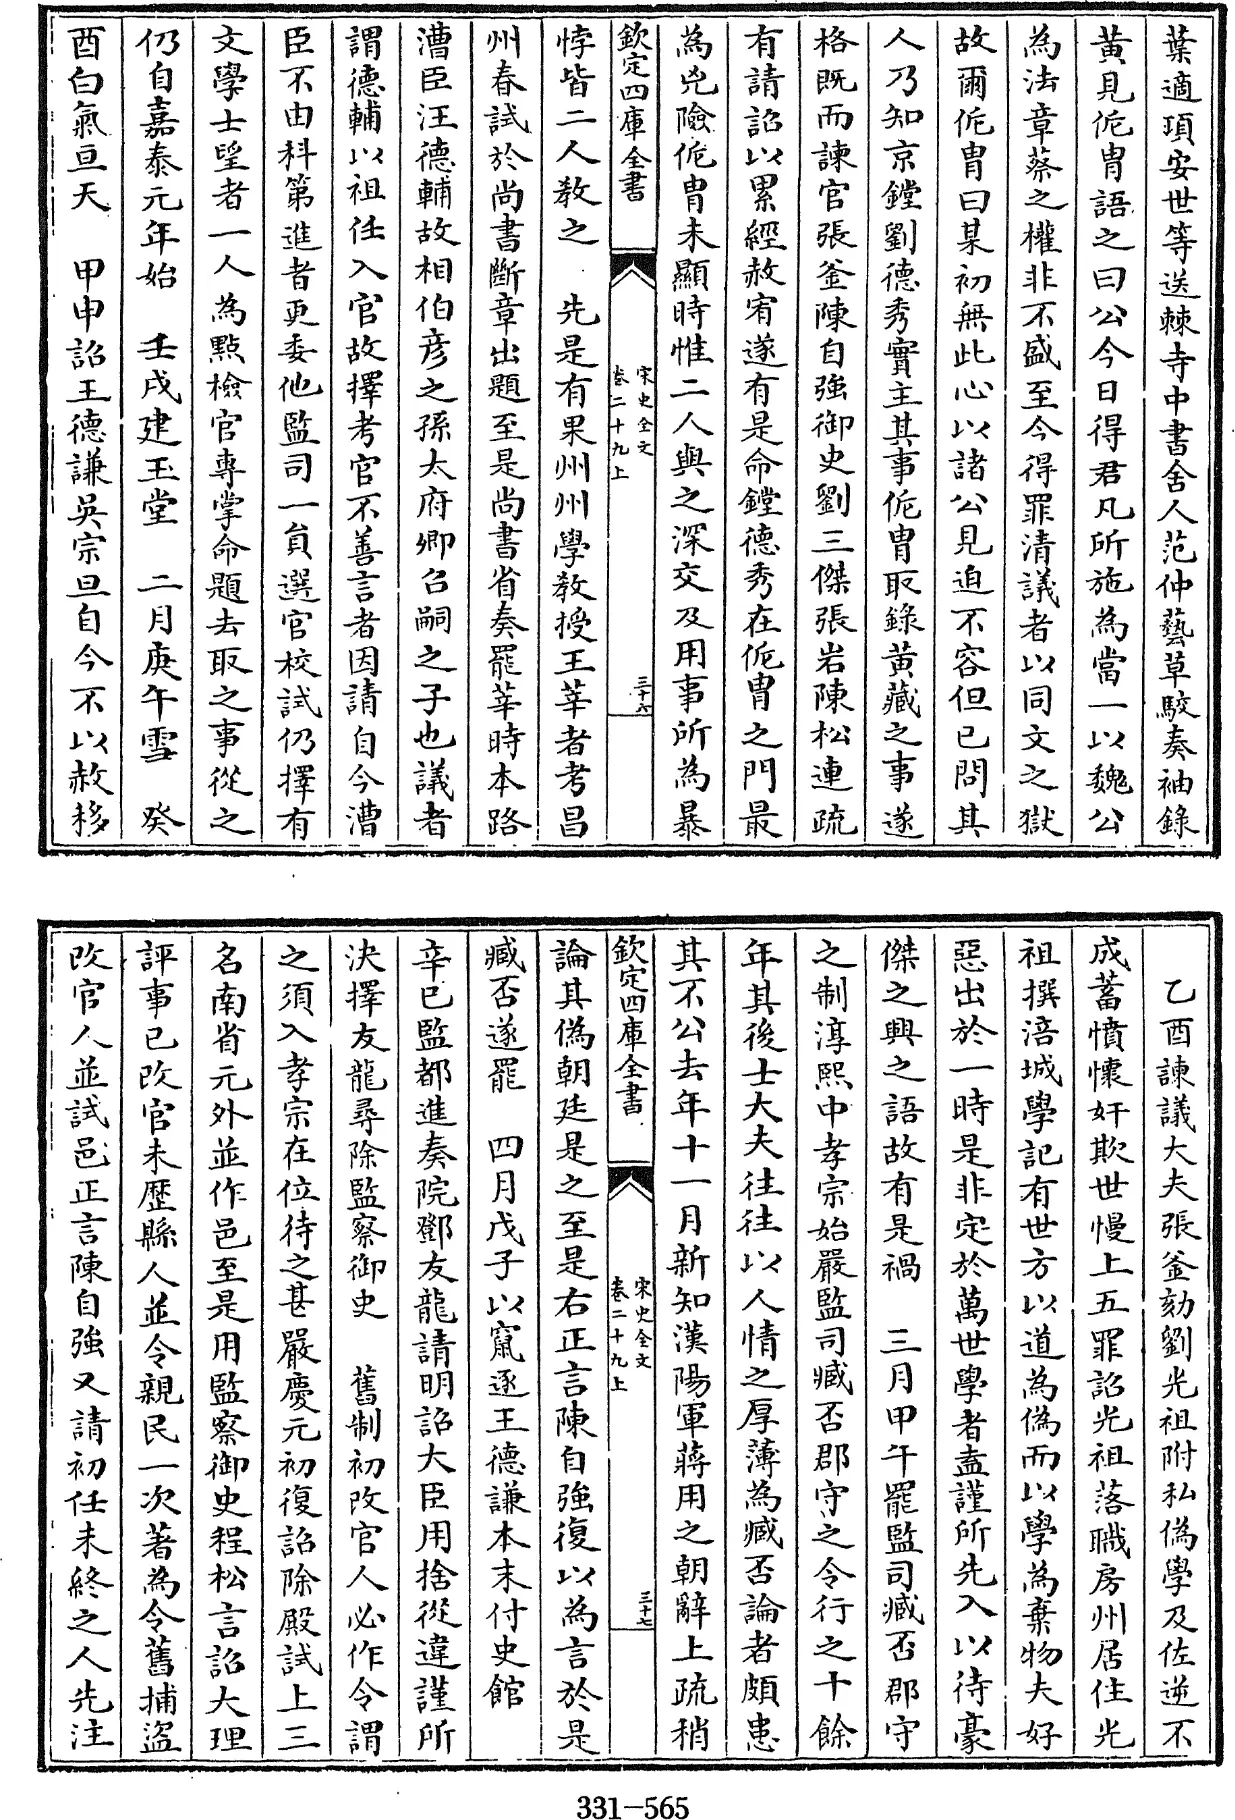 葉適項安世等送棘寺中書舍人范仲藝草駮奏袖錄
黃見侂胄語之曰公今日得君凡所施為當一以魏公
為法章蔡之權非不盛至今得罪清議者以同文之獄
故爾侂胄曰某初無此心以諸公見迫不容但已問其
人乃知京鏜劉德秀實主其事侂胄取錄黃藏之事遂
格既而諫官張釜陳自強御史劉三傑張岩陳松連疏
有請詔以累經赦宥遂有是命鏜德秀在侂胄之門最
為兇險侂胄未顯時惟二人與之深交及用事所為暴
欽定四庫全書
宋史全文
卷二十九上
三十六
悖皆二人教之 先是有果州州學教授王莘者考昌
州春試於尚書斷章出題至是尚書省奏罷莘時本路
漕臣汪德輔故相伯彥之孫太府卿召嗣之子也議者
謂德輔以祖任入官故擇考官不善言者因請自今漕
臣不由科第進者更委他監司一員選官校試仍擇有
文學士望者一人為點檢官專掌命題去取之事從之
仍自嘉泰元年始 壬戌建玉堂 二月庚午雪 癸
酉白氣亘天 甲申詔王德謙吳宗旦自今不以赦移
乙酉諫議大夫張釜劾劉光祖附私偽學及佐逆不
成蓄憤懷奸欺世慢上五罪詔光祖落職房州居住光
祖撰涪城學記有世方以道為偽而以學為棄物夫好
惡出於一時是非定於萬世學者盍謹所先入以待豪
傑之興之語故有是禍 三月甲午罷監司臧否郡守
之制淳熙中孝宗始嚴監司臧否郡守之令行之十餘
年其後士大夫往往以人情之厚薄為臧否論者頗患
其不公去年十一月新知漢陽軍蔣用之朝辭上疏稍
欽定四庫全書
宋史全文
卷二十九上
三十七
論其偽朝廷是之至是右正言陳自強復以為言於是
臧否遂罷 四月戊子以竄逐王德謙本末付史館
辛巳監都進奏院鄧友龍請明詔大臣用捨從違謹所
決擇友龍尋除監察御史 舊制初改官人必作令謂
之須入孝宗在位待之甚嚴慶元初復詔除殿試上三
名南省元外並作邑至是用監察御史程松言詔大理
評事已改官未歷縣人並令親民一次著為令舊捕盜
改官人並試邑正言陳自強又請初任未終之人先注
331-565